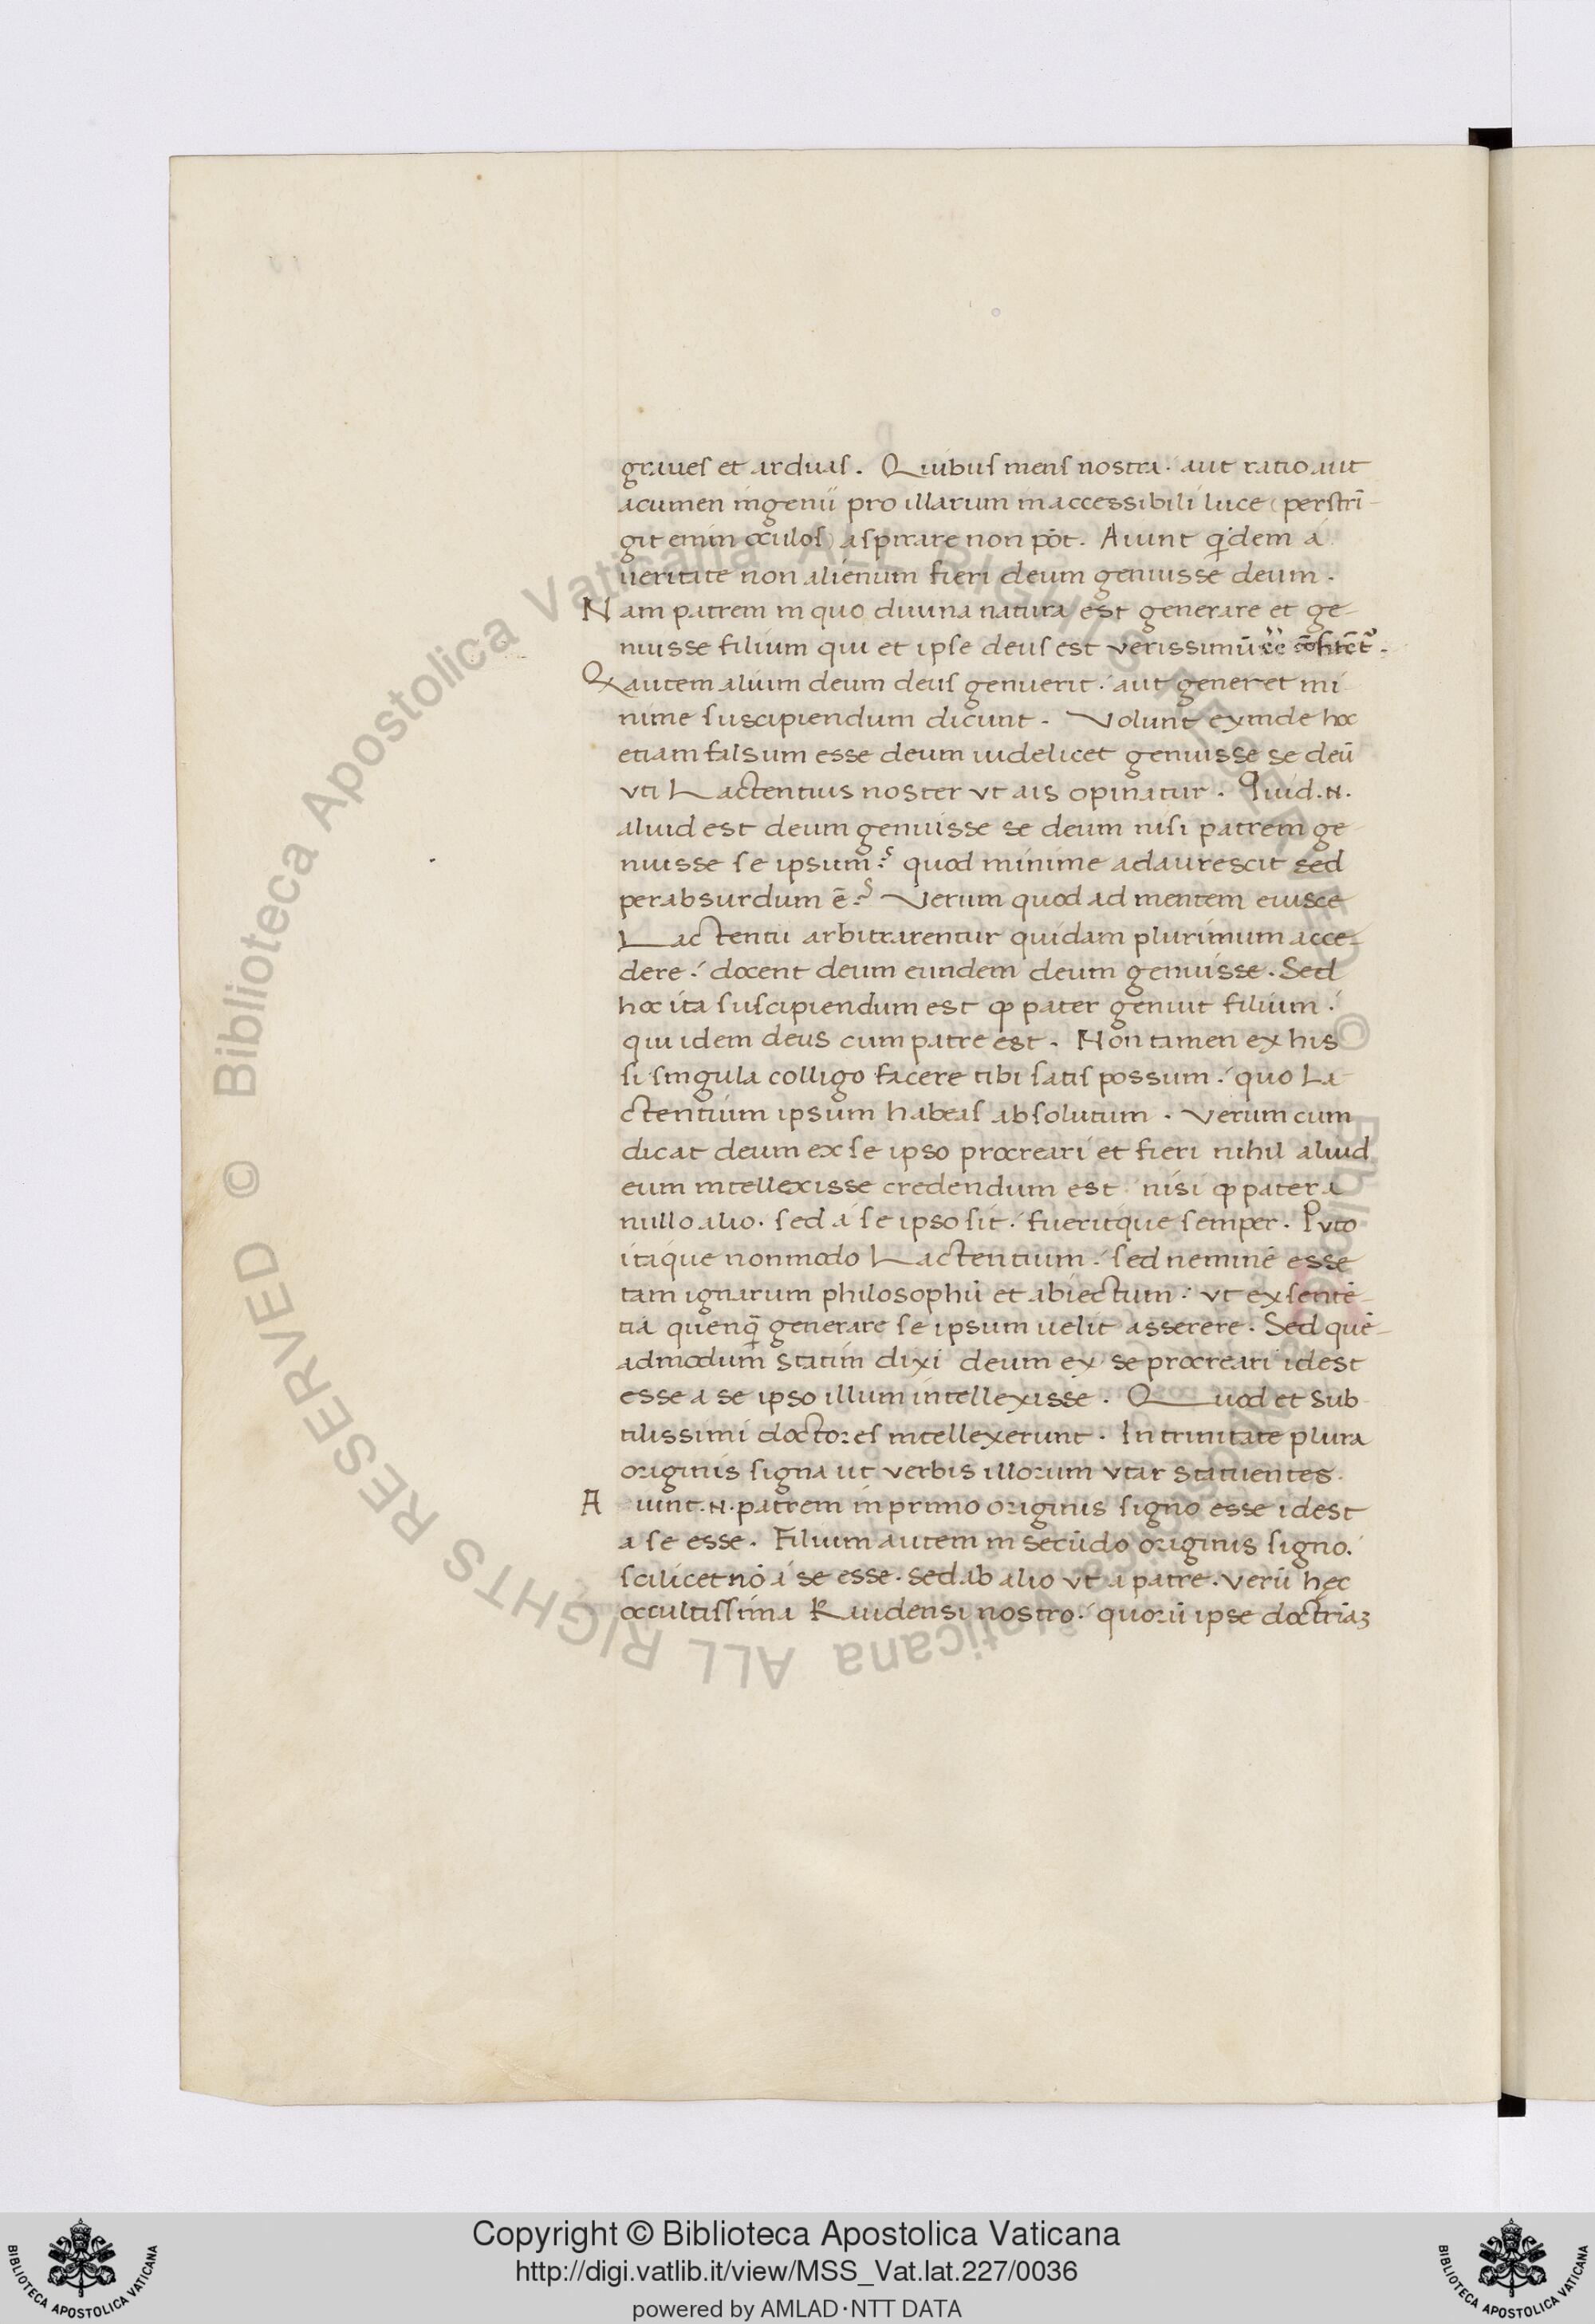 graues et arduas. Quibus mens nostra. aut ratio aut
acumen ingenii pro illarum inaccessibili luce (perstrī-
git enim oculos) aspirare non pōt. Aiunt qͥdem á
ueritate non alienum fieri deum genuisse deum.
Nam patrem in quo diuina natura est generare et ge-
nuisse filium qui et ipse deus est verissimū
Q autem alium deum deus genuerit. aut generet mi
nime suscipiendum dicunt. Volunt exinde hoc
etiam falsum esse deum uidelicet genuisse se deū
vti Lactentius noster vt ais opinatur. Quid .N.
aliud est deum genuisse se deum nisi patrem ge-
nuisse se ipsum? quod minime adaurescit sed
perabsurdum ē? Verum quod ad mentem eiusce
Lactentii arbitrarentur quidam plurimum acce-
dere. docent deum eundem deum genuisse. Sed
hoc ita suscipiendum est ꝙ pater genuit filium.
qui idem deus cum patre est. Non tamen ex his
si singula colligo facere tibi satis possum. quo La-
ctentium ipsum habeas absolutum. Verum cum
dicat deum ex se ipso procreari et fieri nihil aliud
eum intellexisse credendum est. nisi ꝙ pater a
nullo alio. sed á se ipso sit. fueritque semper. Puto
itaque nonmodo Lactentium. sed neminē esse
tam ignarum philosophū et abiectum. vt ex sentē-
tia quenq̄ generare se ipsum uelit asserere. Sed quē-
admodum statim dixi deum ex se procreari idest
esse a se ipso illum intellexisse. Quod et sub
tilissimi doctores intellexerunt. In trinitate plura
originis signa ut verbis illorum vtar statuentes.
Aiunt .N. patrem in primo originis signo esse idest
a se esse. Filium autem in secūdo originis signo.
scilicet nō á se esse. sed ab alio vt a patre. verū hęc
occultissima Raudensi nostro. quorū ipse doctriāꝫ
Copyright © Biblioteca Apostolica Vaticana
http://digi.vatlib.it/view/MSS_Vat.lat.227/0036
powered by AMLAD·NTT DATA
BIBLIOTECA APOSTOLICA VATICANA
BIBLIOTECA APOSTOLICA VATICANA
© Biblioteca Apostolica Vaticana ALL RIGHTS RESERVED